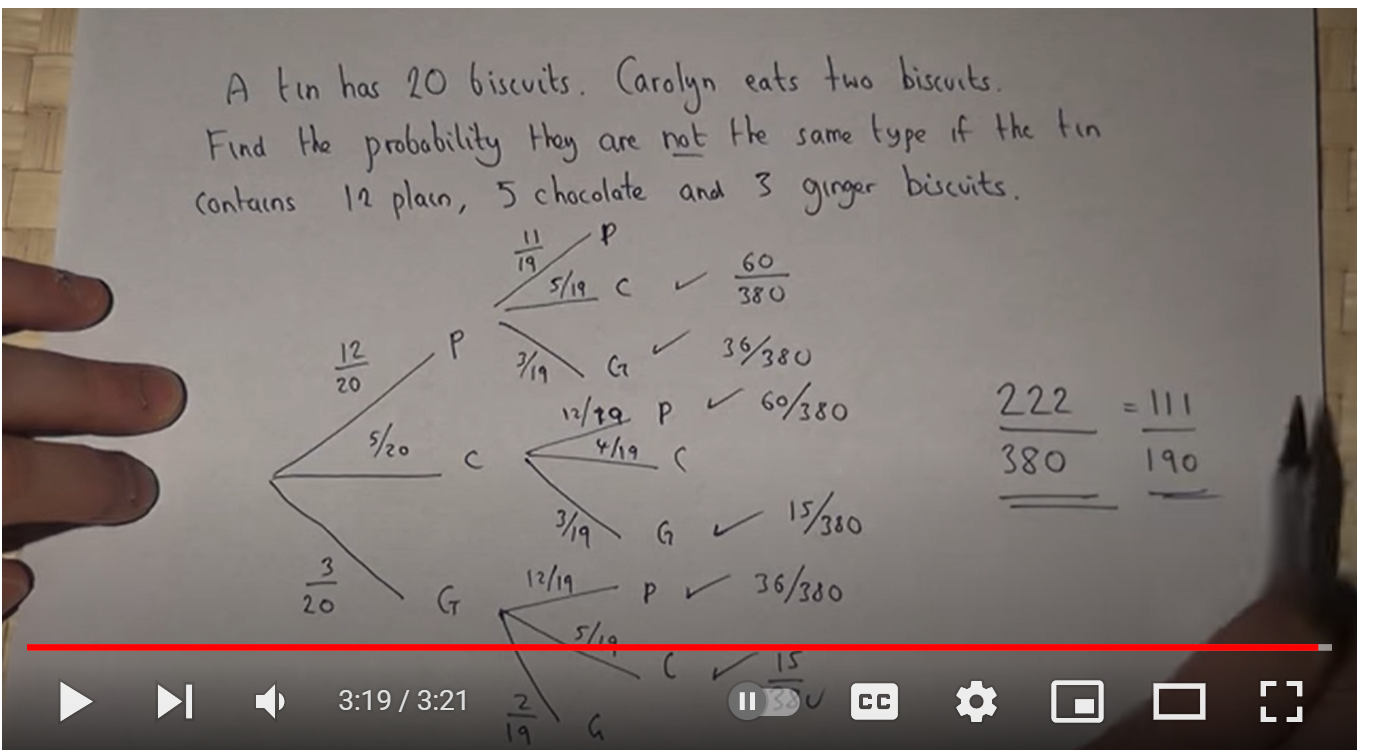 A tin has 20 biscuits. Carolyn eats two biscuits.
Find the probability they are not the same type if the tin
contains 12 plain, 5 chocolate and 3 ginger biscuits.
11/19 P
5/19 C ✓ 60/380
12/20 P
3/19 G ✓ 36/380
12/19 P ✓ 60/380
222/380 = 111/190
5/20 C
4/19 C
3/19 G ✓ 15/380
3/20 G
12/19 P ✓ 36/380
5/19 C ✓ 15/380
2/19 G
3:19 / 3:21
CC